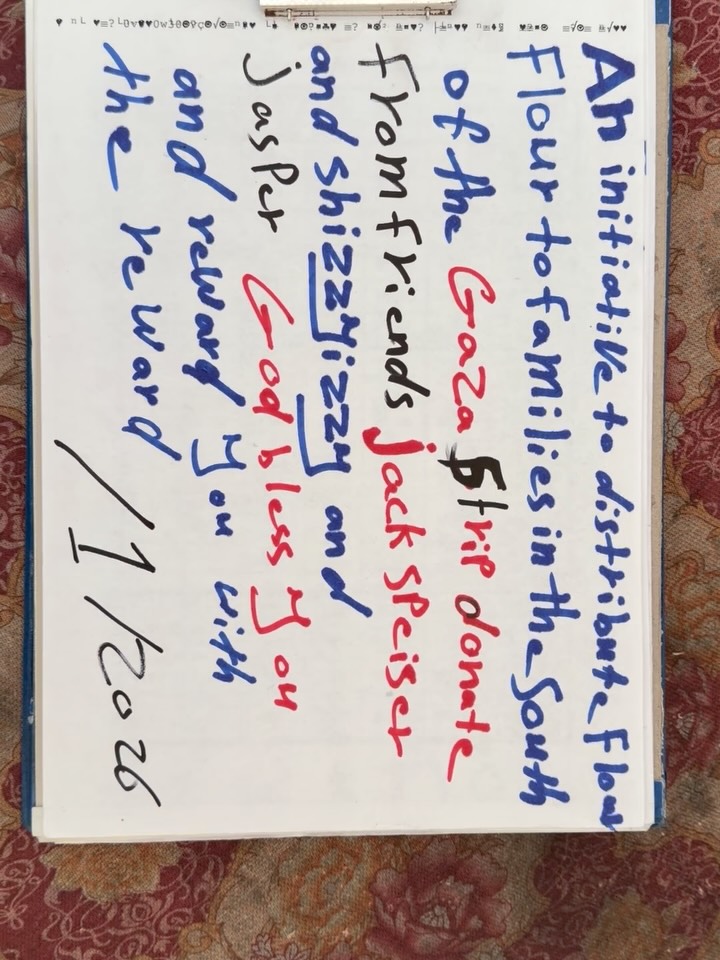 An initiative to distribute Flour
Flour to families in the South
of the Gaza Strip donate
From Friends jack speiser
and shizzyizzy and
jasper God bless you
and reward you with
the reward
/1/2026